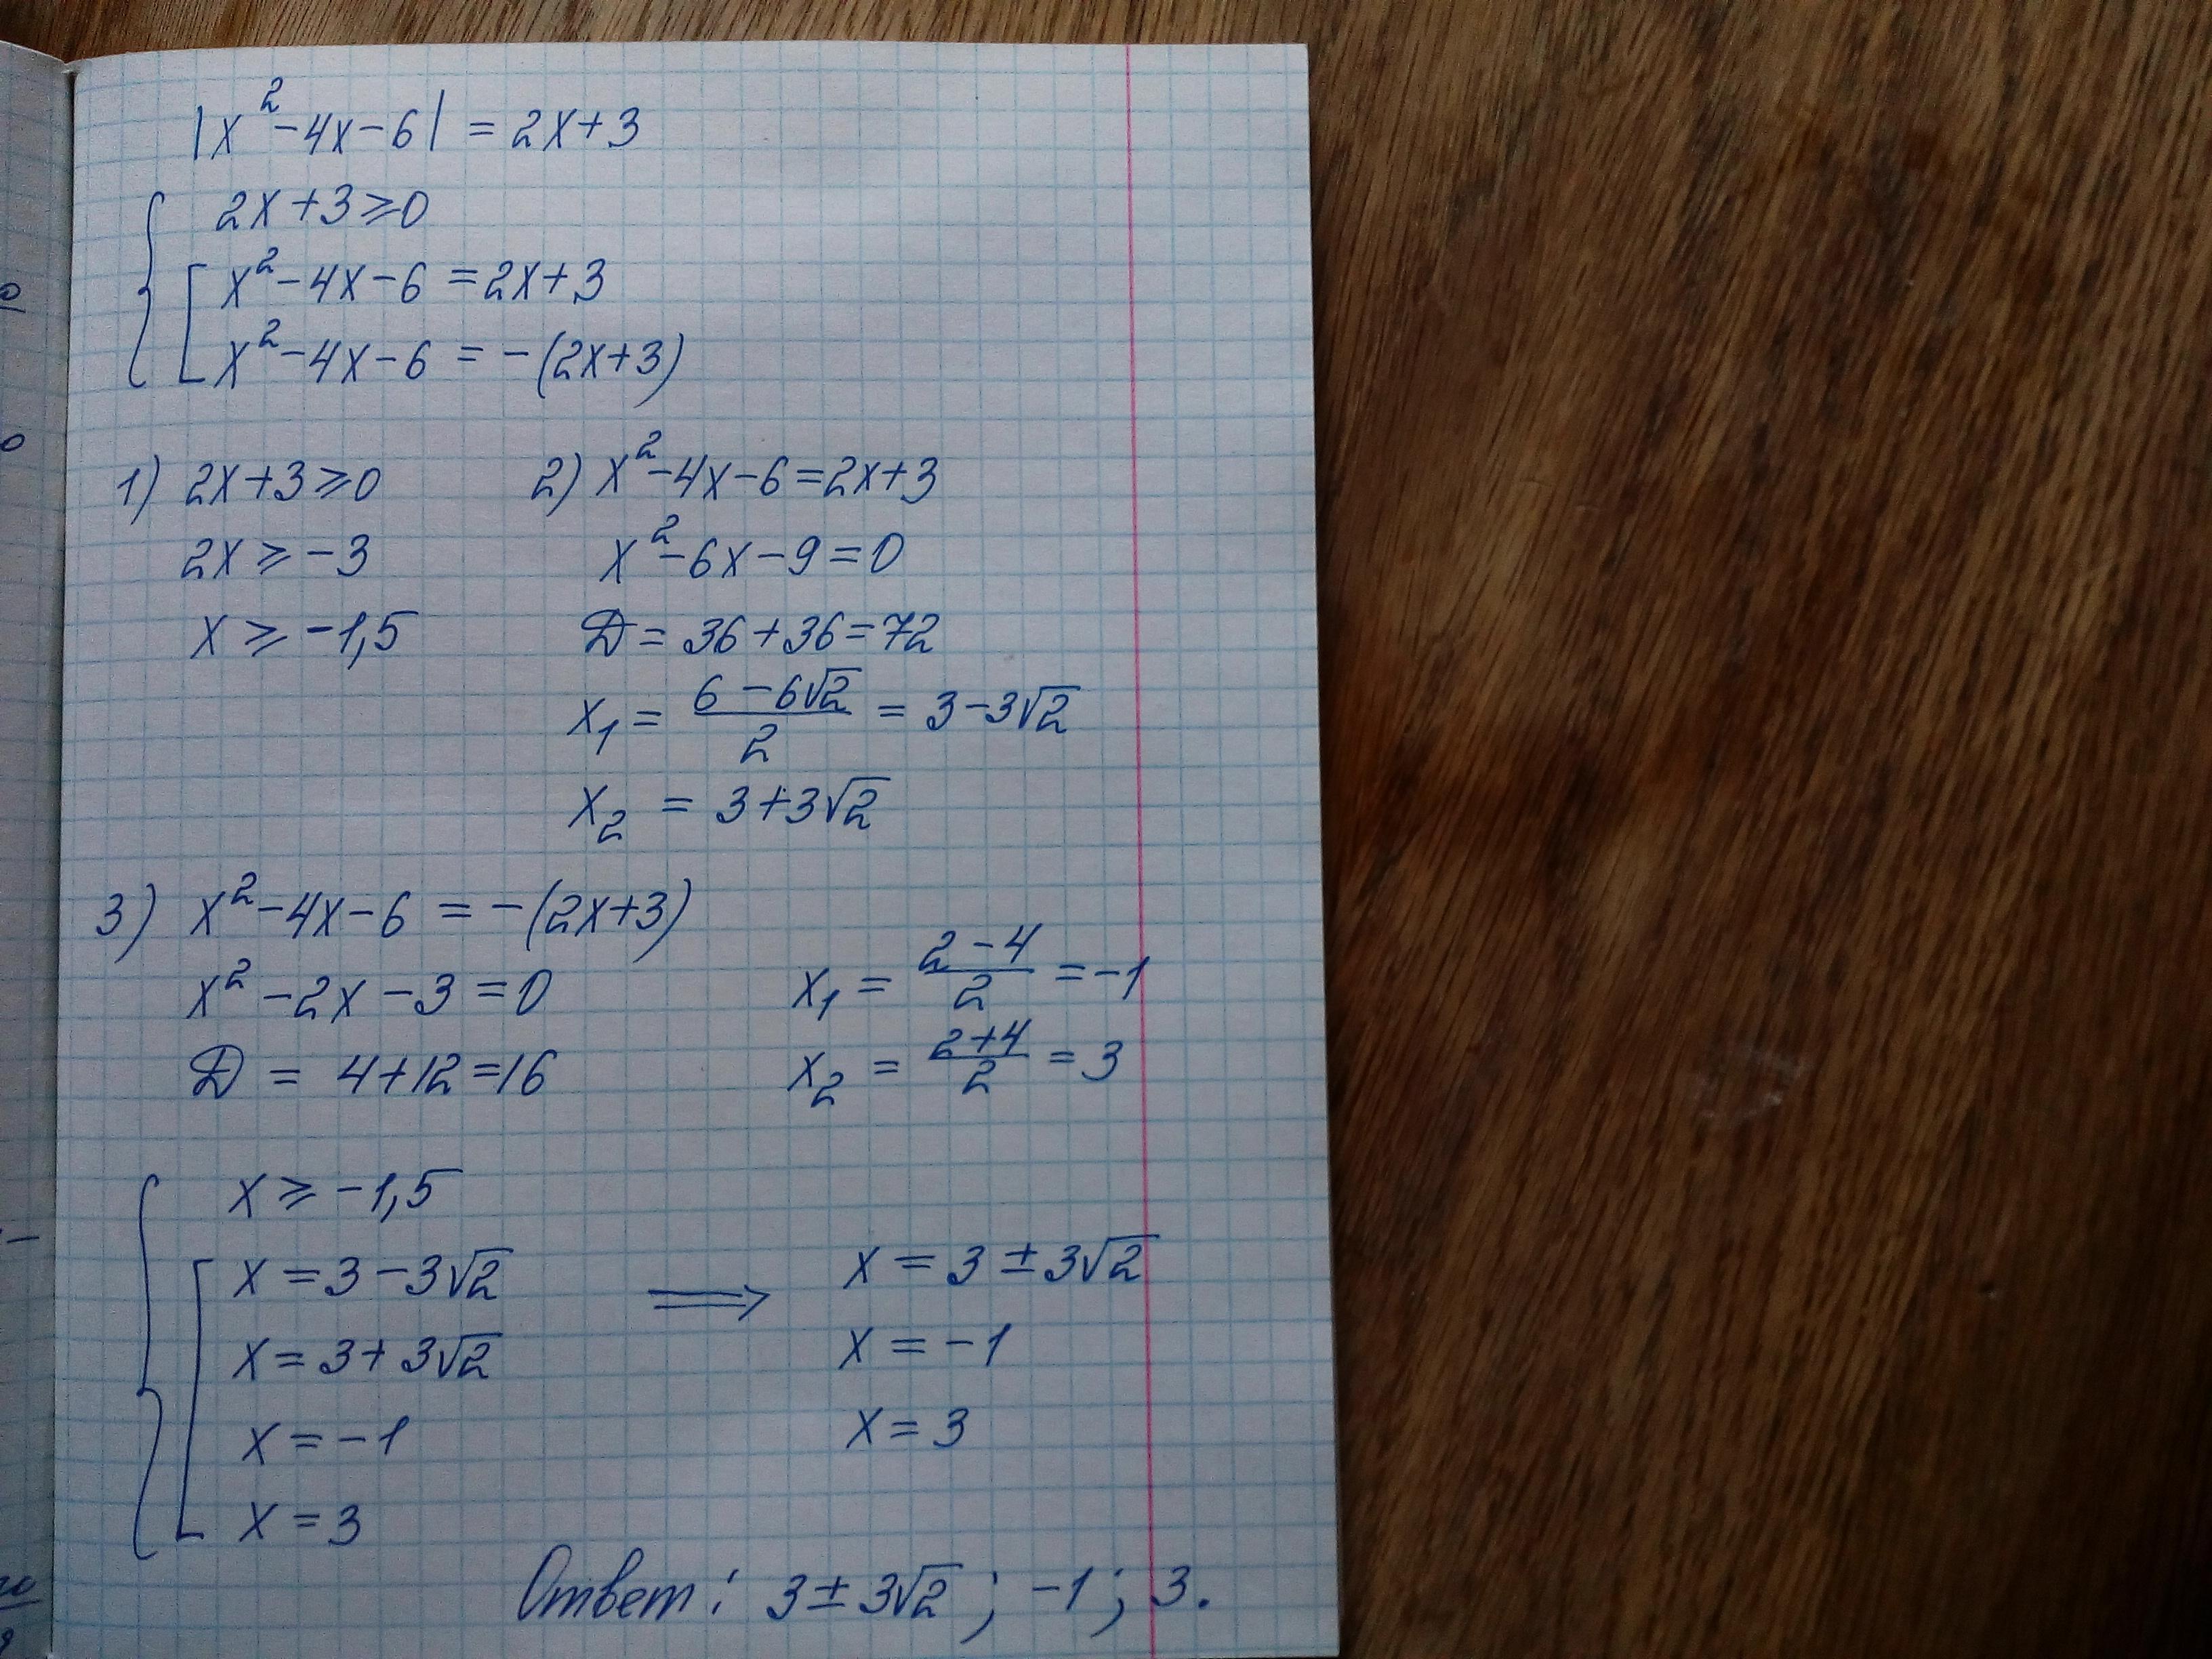 |x²-4x-6| = 2x+3
2x+3⩾0
x²-4x-6 = 2x+3
x²-4x-6 = -(2x+3)
1) 2x+3⩾0
2x⩾-3
x⩾-1,5
2) x²-4x-6=2x+3
x²-6x-9=0
D = 36+36=72
x₁ = (6-6√2)/2 = 3-3√2
x₂ = 3+3√2
3) x²-4x-6 = -(2x+3)
x²-2x-3=0
D = 4+12=16
x₁ = (2-4)/2 = -1
x₂ = (2+4)/2 = 3
x ⩾ -1,5
x = 3-3√2
x = 3+3√2
x = -1
x = 3
⟹
x = 3±3√2
x = -1
x = 3
Ответ: 3±3√2; -1; 3.